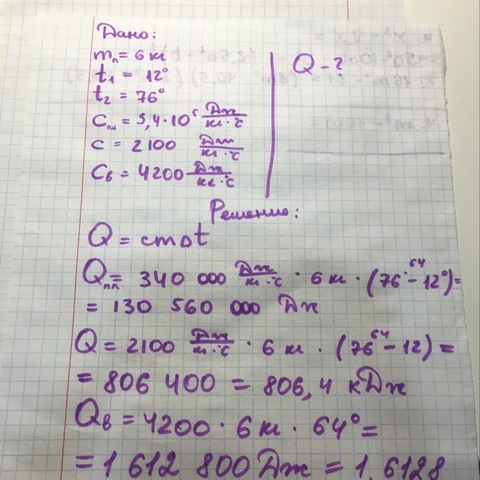 Дано:
mл = 6 кг
t1 = 12°
t2 = 76°
Cпл = 3,4·10⁵ Дж/кг·°С
c = 2100 Дж/кг·°С
Cв = 4200 Дж/кг·°С
Q - ?
Решение:
Q = cm∆t
Qпл = 340 000 Дж/кг·°С · 6 кг · (76 - 12°) = 64
= 130 560 000 Дж
Q = 2100 Дж/кг·°С · 6 кг · (76 - 12) = 64
= 806 400 = 806,4 кДж
Qв = 4200 · 6 кг · 64° =
= 1 612 800 Дж = 1,6128